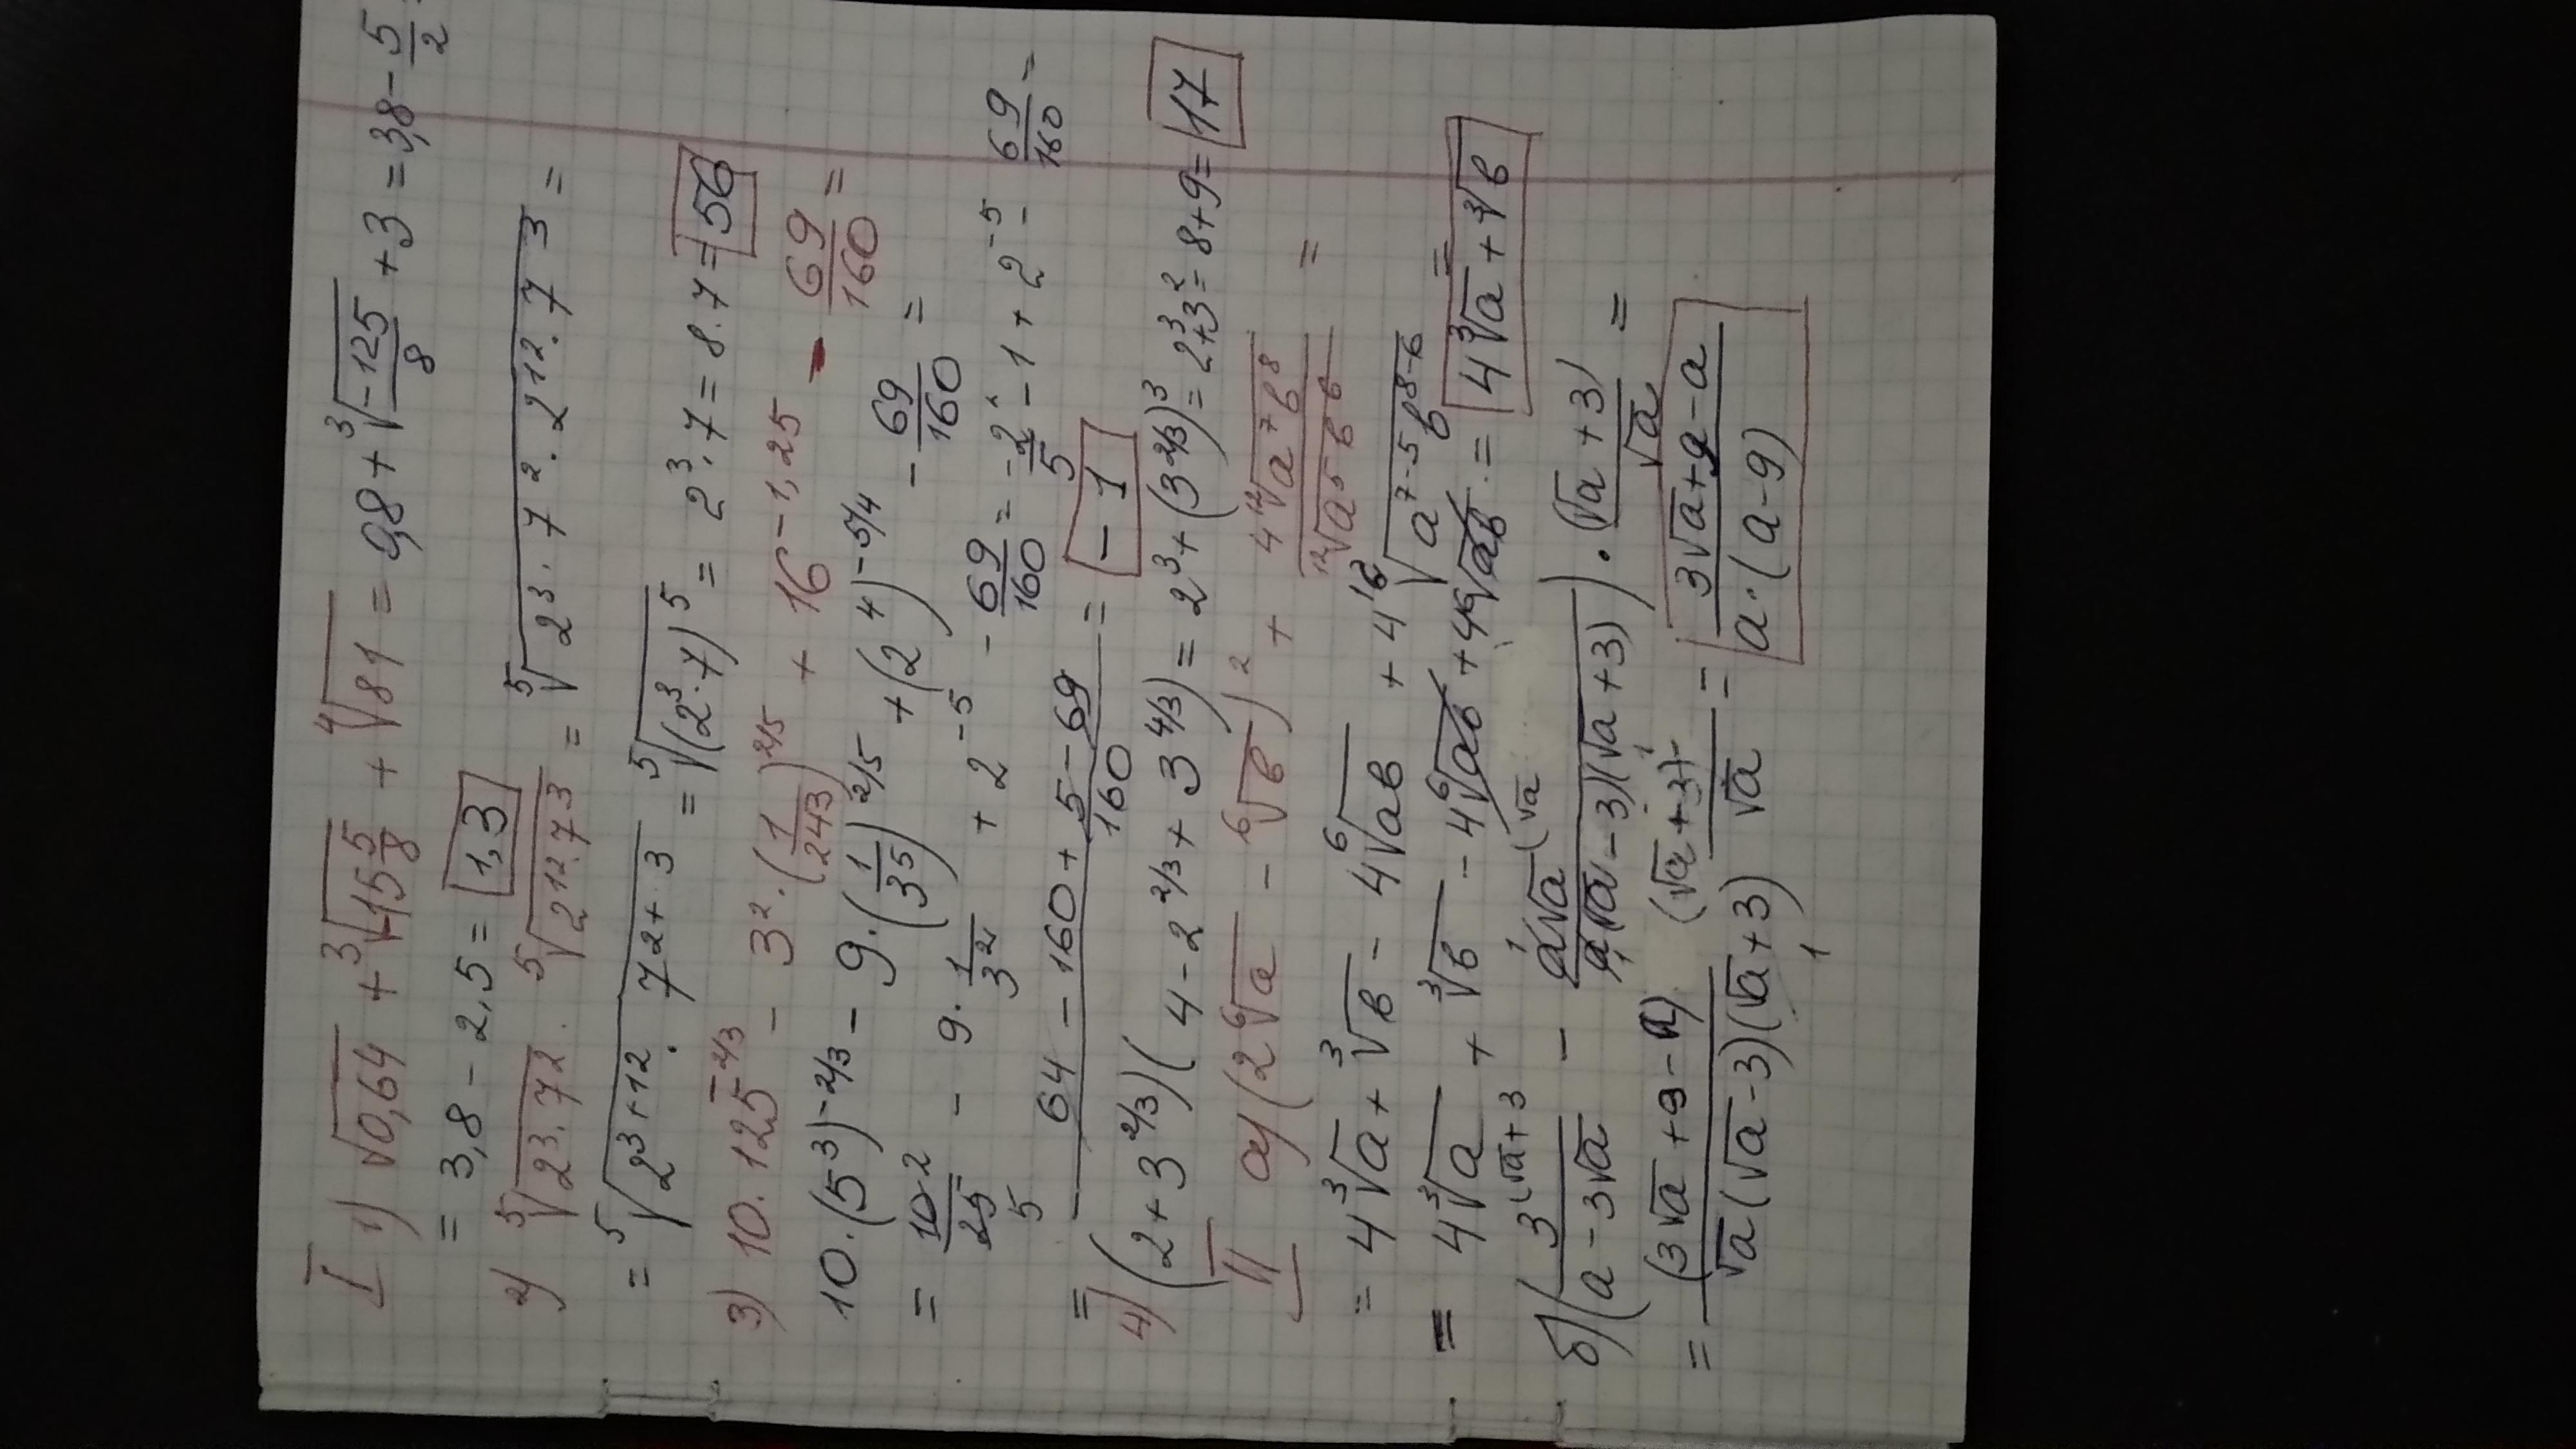 I 1) √0,64 + ³√-15 5/8 + ⁴√81 = 0,8 + ³√-125/8 + 3 = 3,8 - 5/2
= 3,8 - 2,5 = 1,3
2) ⁵√2³·7² · ⁵√2¹²·7³ = ⁵√2³·7²·2¹²·7³ =
= ⁵√2³⁺¹² · 7²⁺³ = ⁵√(2³·7)⁵ = 2³·7 = 8·7 = 56
3) 10·125^(-2/3) - 3²·(1/243)^(2/5) + 16^(-1,25) - 69/160 =
10·(5³)^(-2/3) - 9·(1/3⁵)^(2/5) + (2⁴)^(-5/4) - 69/160 =
= 10·2/25 5 - 9·1/3² + 2⁻⁵ - 69/160 = 2/5 - 1 + 2⁻⁵ - 69/160 =
= 64 - 160 + 5 - 69/160 = -1
4) (2 + 3^(2/3))(4 - 2^(2/3) + 3^(4/3)) = 2³ + (3^(2/3))³ = 2³ + 3² = 8 + 9 = 17
II а) (2 ⁶√a - ⁶√b)² + 4 ¹²√a⁷b⁸ / ¹²√a⁵b⁶ =
= 4 ³√a + ³√b - 4 ⁶√ab + 4 ¹²√a⁷⁻⁵b⁸⁻⁶ =
= 4 ³√a + ³√b - 4 ⁶√ab + 4 ⁶√ab = 4 ³√a + ³√b
б) (3 (√a+3 / a - 3√a - a√a (√a / a(√a - 3)(√a + 3)) · (√a + 3) / √a =
= (3√a + 9 - a) / √a(√a - 3)(√a + 3) (√a + 3) / √a = 3√a + 9 - a / a·(a - 9)